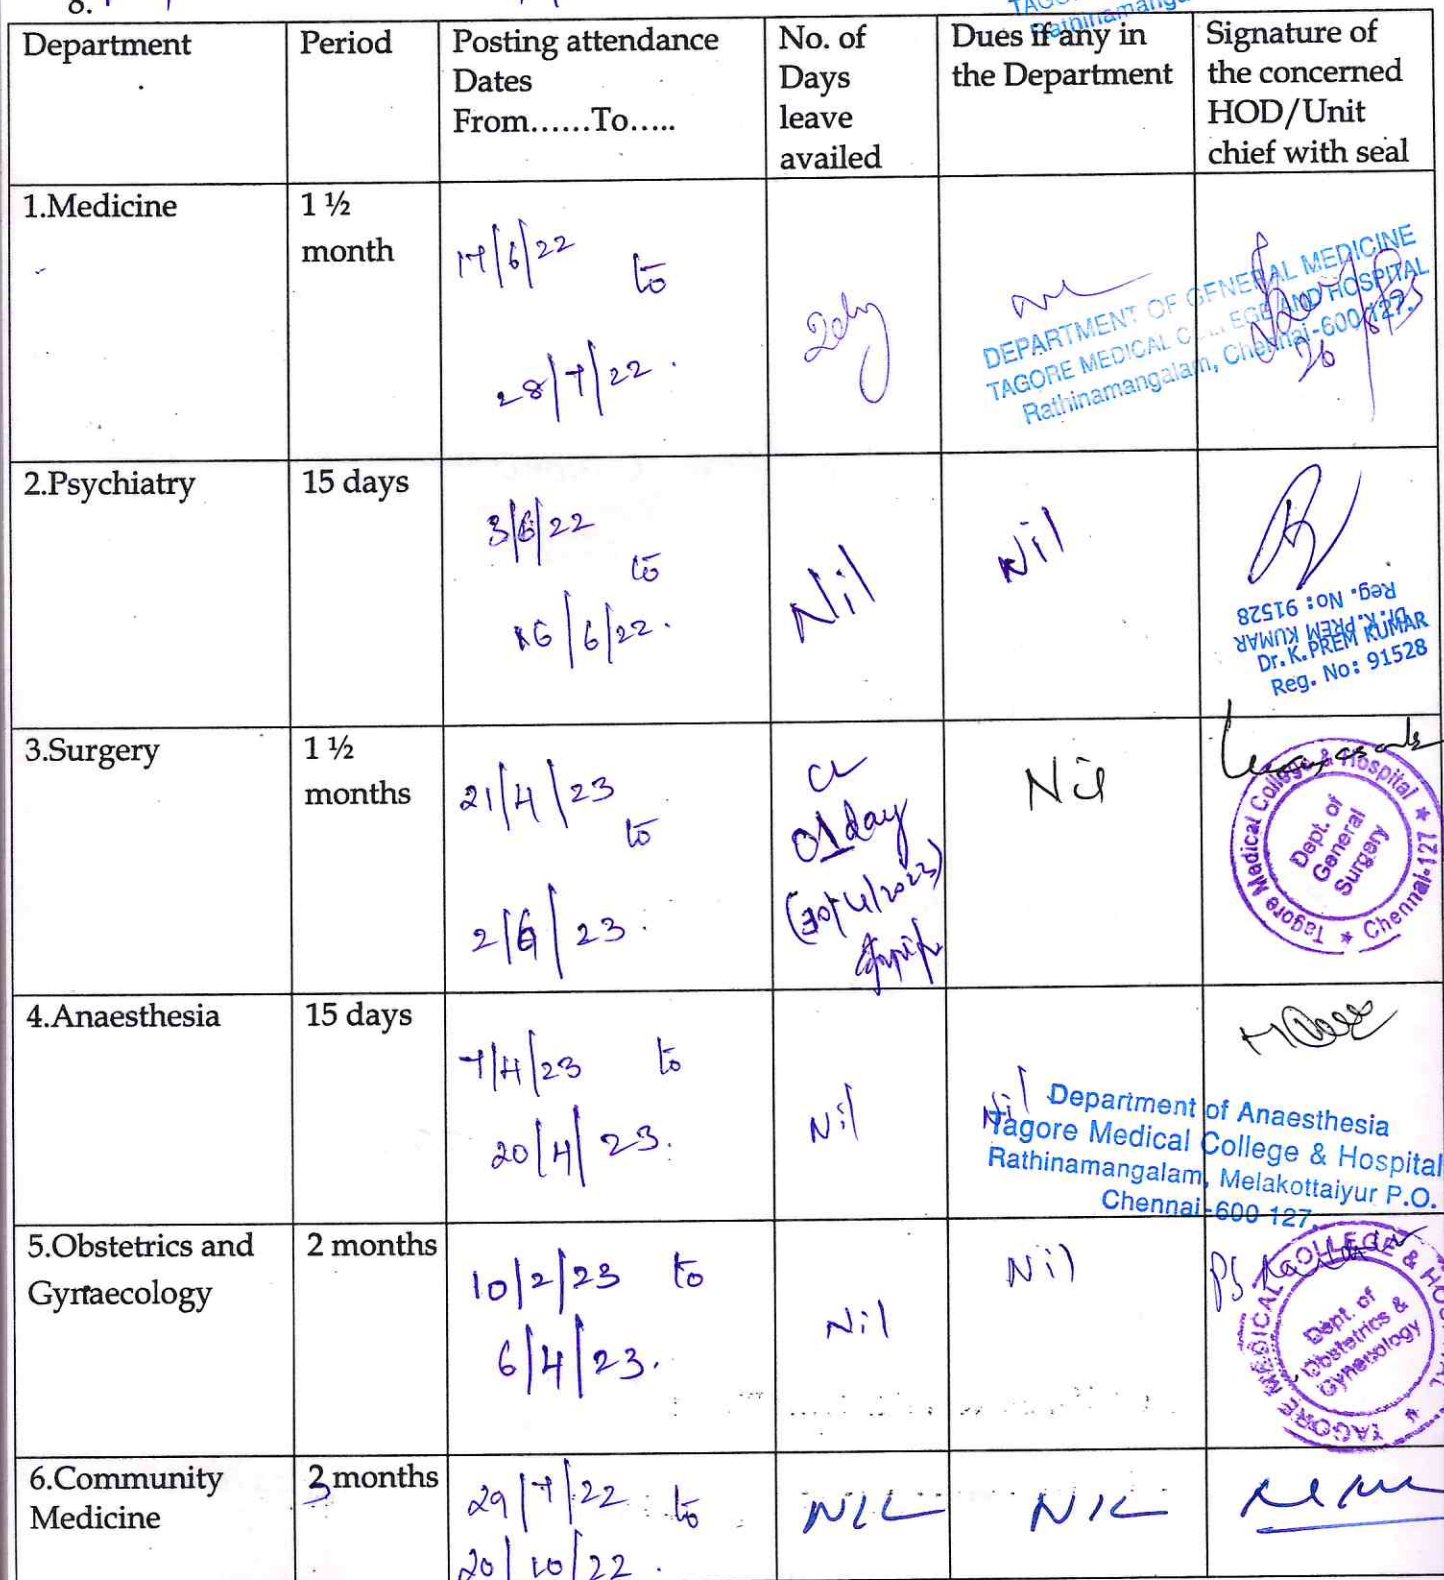 8.
Rathinamanga
Department
Period
Posting attendance
Dates
From......To.....
No. of
Days
leave
availed
Dues if any in
the Department
Signature of
the concerned
HOD/Unit
chief with seal
1.Medicine
1 ½
month
17/6/22
to
28/7/22.
DEPARTMENT OF GENERAL MEDICINE
TAGORE MEDICAL COLLEGE AND HOSPITAL
Rathinamangalam, Chennai-600 127.
2.Psychiatry
15 days
3/6/22
to
16/6/22.
Nil
Nil
Dr. K. PREM KUMAR
Reg. No: 91528
Dr. K. PREM KUMAR
Reg. No: 91528
3.Surgery
1 ½
months
21/4/23
to
2/6/23.
CL
01 day
(30/4/2023)
Nil
Tagore Medical College & Hospital * Chennai-127 *
Dept. of
General
Surgery
4.Anaesthesia
15 days
7/4/23 to
20/4/23.
Nil
Nil
Department of Anaesthesia
Tagore Medical College & Hospital
Rathinamangalam, Melakottaiyur P.O.
Chennai-600 127.
5.Obstetrics and
Gynaecology
2 months
10/2/23 to
6/4/23.
Nil
Nil
TAGORE MEDICAL COLLEGE & HO
Dept. of
Obstetrics &
Gynecology
6.Community
Medicine
3 months
29/7/22 to
20/10/22.
NIL
NIL